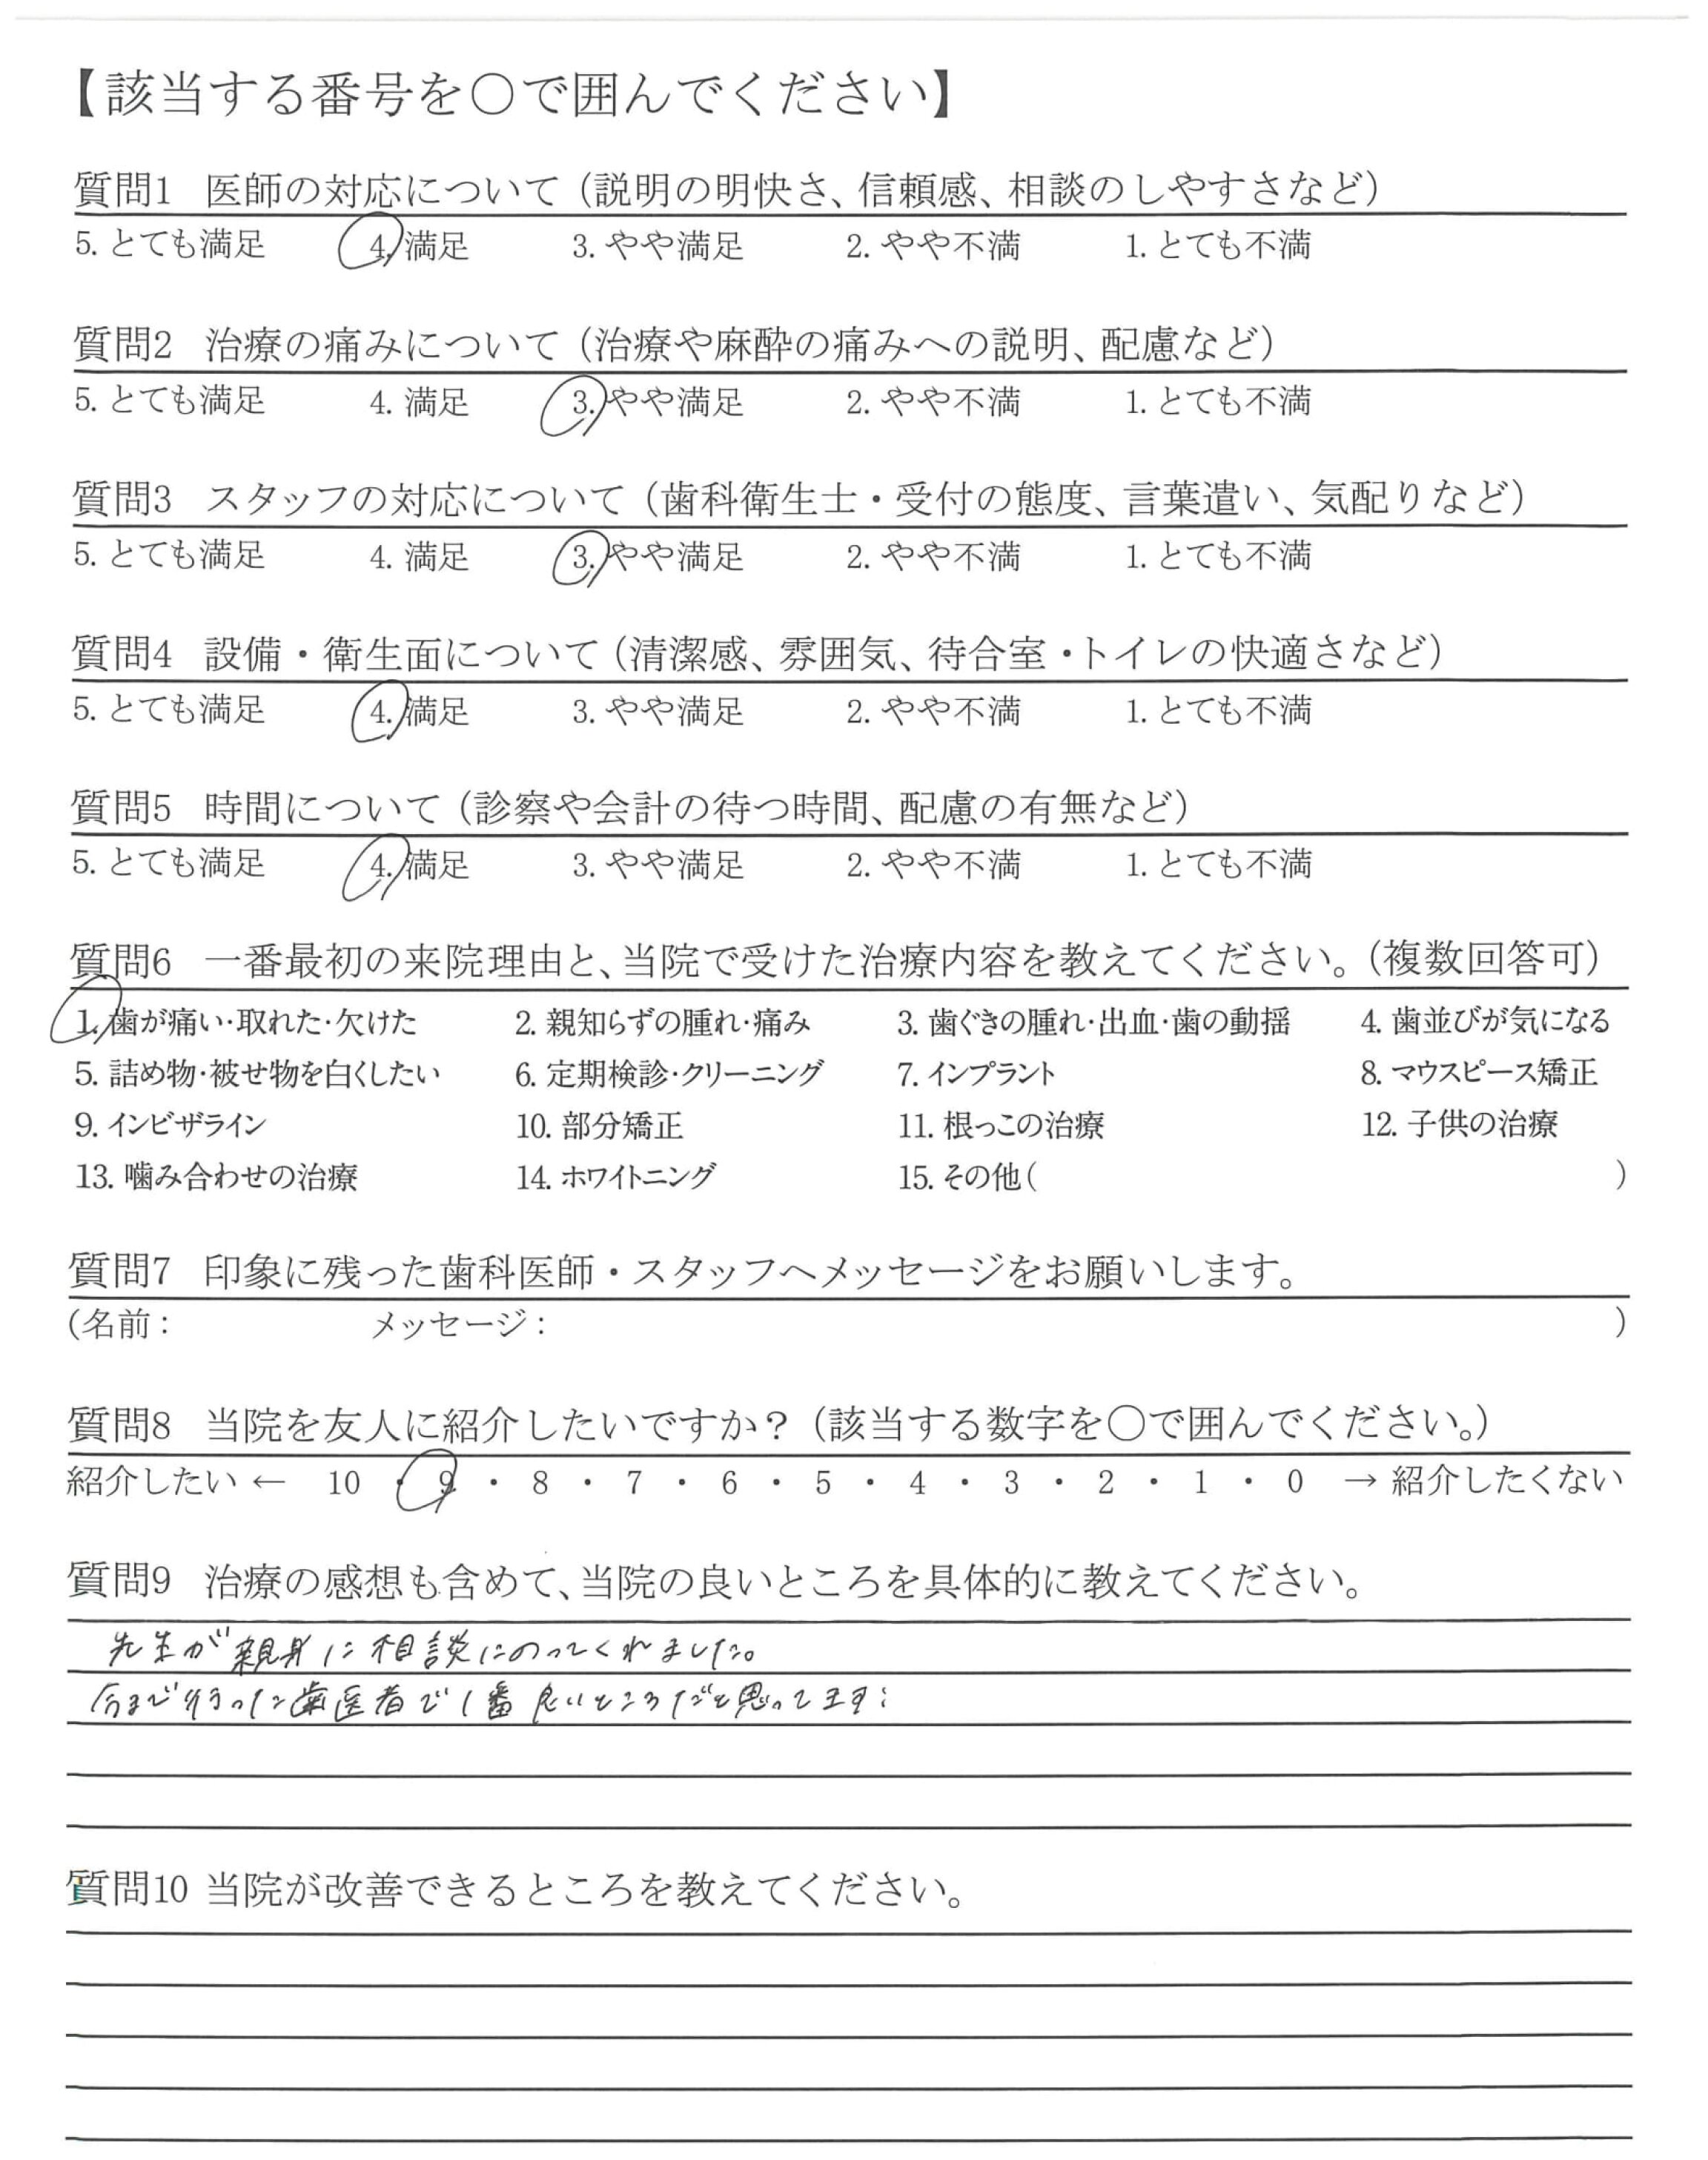 【該当する番号を〇で囲んでください】
質問1 医師の対応について（説明の明快さ、信頼感、相談のしやすさなど）
5. とても満足 4. 満足 3. やや満足 2. やや不満 1. とても不満
質問2 治療の痛みについて（治療や麻酔の痛みへの説明、配慮など）
5. とても満足 4. 満足 3. やや満足 2. やや不満 1. とても不満
質問3 スタッフの対応について（歯科衛生士・受付の態度、言葉遣い、気配りなど）
5. とても満足 4. 満足 3. やや満足 2. やや不満 1. とても不満
質問4 設備・衛生面について（清潔感、雰囲気、待合室・トイレの快適さなど）
5. とても満足 4. 満足 3. やや満足 2. やや不満 1. とても不満
質問5 時間について（診察や会計の待つ時間、配慮の有無など）
5. とても満足 4. 満足 3. やや満足 2. やや不満 1. とても不満
質問6 一番最初の来院理由と、当院で受けた治療内容を教えてください。（複数回答可）
1. 歯が痛い・取れた・欠けた 2. 親知らずの腫れ・痛み 3. 歯ぐきの腫れ・出血・歯の動揺 4. 歯並びが気になる
5. 詰め物・被せ物を白くしたい 6. 定期検診・クリーニング 7. インプラント 8. マウスピース矯正
9. インビザライン 10. 部分矯正 11. 根っこの治療 12. 子供の治療
13. 噛み合わせの治療 14. ホワイトニング 15. その他（ ）
質問7 印象に残った歯科医師・スタッフへメッセージをお願いします。
（名前： メッセージ： ）
質問8 当院を友人に紹介したいですか？（該当する数字を〇で囲んでください。）
紹介したい ← 10 ・ 9 ・ 8 ・ 7 ・ 6 ・ 5 ・ 4 ・ 3 ・ 2 ・ 1 ・ 0 → 紹介したくない
質問9 治療の感想も含めて、当院の良いところを具体的に教えてください。
先生が親身に相談にのってくれました。
今まで行った歯医者で1番良いところだと思ってます!
質問10 当院が改善できるところを教えてください。